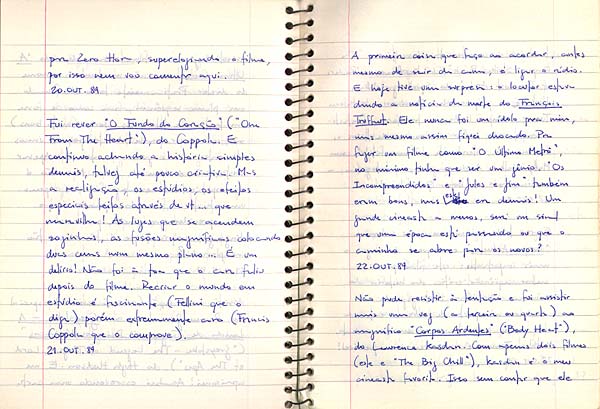 por Zero Hora, superelogiando o filme,
por isso nem vou comentar aqui.
20.OUT.84
Fui rever "O Fundo do Coração" ("One
From The Heart"), do Coppola. E
continuo achando a história simples
demais, talvez até pouco criativa. Mas
a realização, os estúdios, os efeitos
especiais feitos através de vt... que
maravilha! As luzes que se acendem
sozinhas, as fusões magníficas colocando
duas cenas num mesmo plano... É um
delírio! Não foi à toa que o cara faliu
depois do filme. Recriar o mundo em
estúdio é fascinante (Fellini que o
diga) porém extremamente caro (Francis
Coppola que o comprove).
21.OUT.84
A primeira coisa que faço ao acordar, antes
mesmo de sair da cama, é ligar o rádio.
E hoje tive uma surpresa: o locutor estava
dando a notícia da morte do François
Truffaut. Ele nunca foi um ídolo pra mim,
mas mesmo assim fiquei chocado. Pra
fazer um filme como "O Último Metrô",
no mínimo tinha que ser um gênio. "Os
Incompreendidos" e "Jules e Jim" também
eram bons, mas esse era demais! Um
grande cineasta a menos, será um sinal
que uma época está passando ou que o
caminho se abre para os novos?
22.OUT.84
Não pude resistir à tentação e fui assistir
mais uma vez (a terceira ou quarta) ao
magnífico "Corpos Ardentes" ("Body Heat"),
do Lawrence Kasdan. Com apenas dois filmes
(este e "The Big Chill"), Kasdan é o meu
cineasta favorito. Isso sem contar que ele